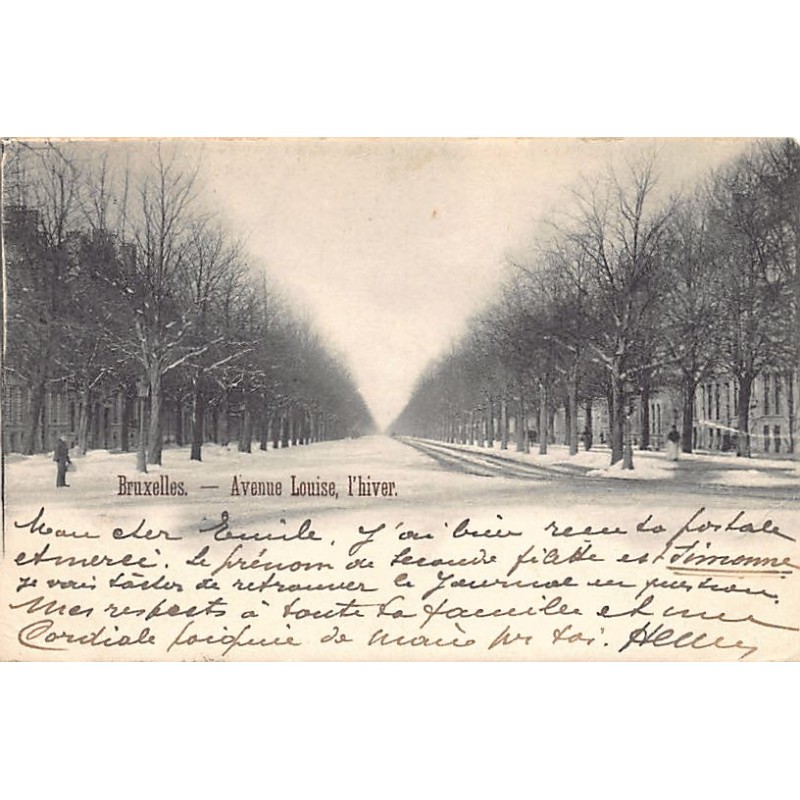 Bruxelles. — Avenue Louise, l'hiver.
Mon cher Emile, J'ai bien reçu ta postale
et merci. Le prénom de seconde filette est Simonne
je vais tâcher de retrouver le Journal en question.
Mes respects à toute ta famille et une
Cordiale poignie de main pr toi.